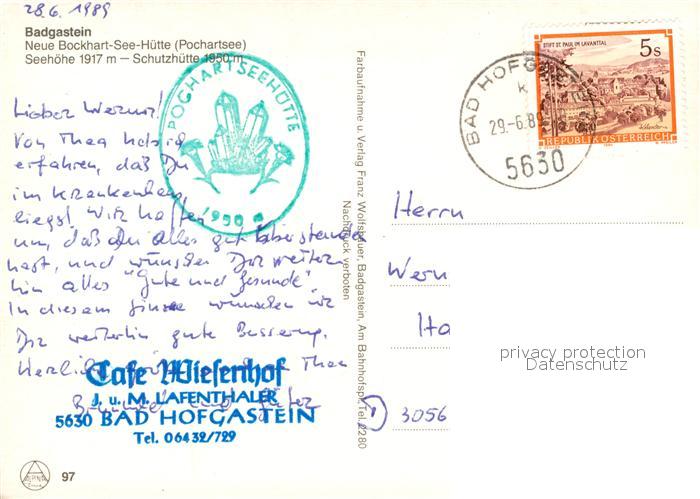 28.6.1989
Badgastein
Neue Bockhart-See-Hütte (Pochartsee)
Seehöhe 1917 m — Schutzhütte 1950 m
POCHARTSEEHÜTTE
1950 m
Lieber Werner!
Von Thea hab ich
erfahren, daß Du
im Krankenhaus
liegst. Wir hoffen
nun, daß Du alles gut überstanden
hast, und wünschen Dir weiter
hin alles "Gute und Gesunde".
In diesem Sinne wünschen wir
Dir weiterhin gute Besserung.
Herzliche Thea
und
Cafe Wiesenhof
J. u. M. LAFENTHALER
5630 BAD HOFGASTEIN
Tel. 06432/729
97
Farbaufnahme u. Verlag Franz Wolfsbauer, Badgastein, Am Bahnhofspl. Tel. 2280
Nachdruck verboten
STIFT ST. PAUL IM LAVANTTAL
5s
REPUBLIK ÖSTERREICH
BAD HOFGASTEIN
29.-6.89
5630
Herrn
Wern
Ha
privacy protection
Datenschutz
D 3056